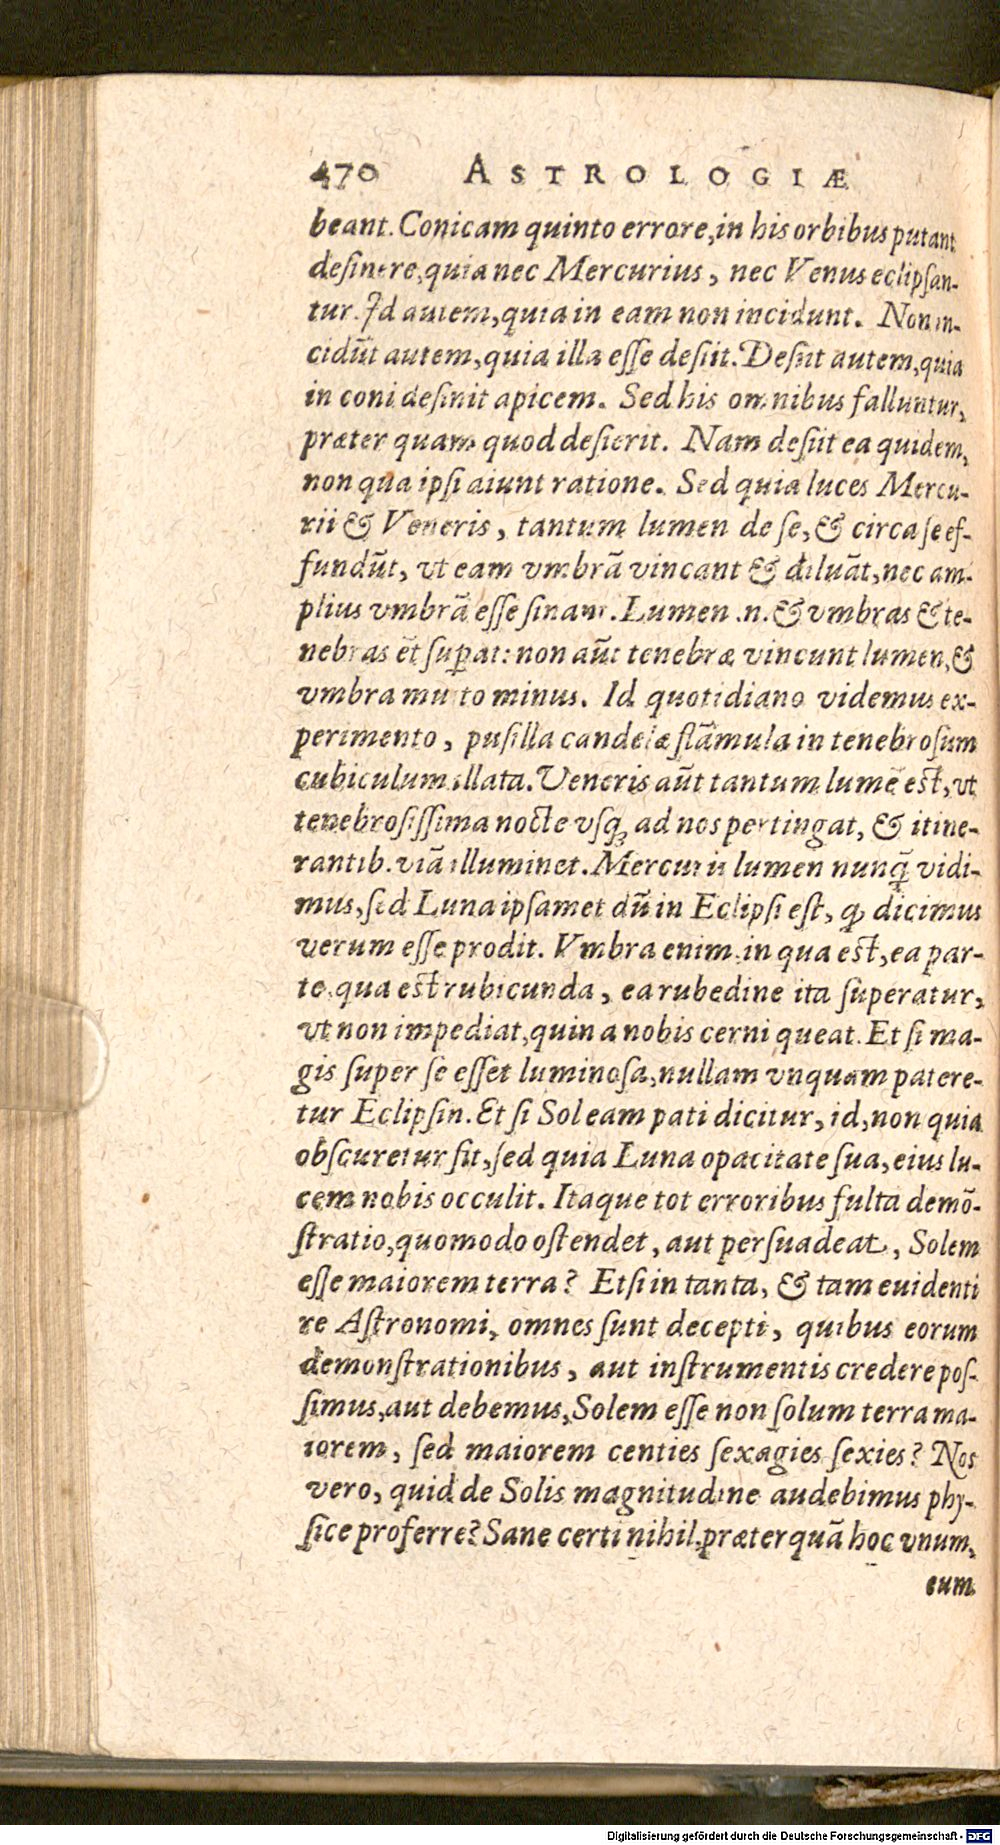 470 ASTROLOGIÆ
beant. Conicam quinto errore, in his orbibus putant
desinere, quia nec Mercurius, nec Venus eclipſan-
tur. Id autem, quia in eam non incidunt. Non in-
cidūt autem, quia illa eſſe deſiit. Deſiit autem, quia
in coni deſinit apicem. Sed his omnibus falluntur,
præter quam quod deſierit. Nam deſiit ea quidem,
non qua ipſi aiunt ratione. Sed quia luces Mercu-
rii & Veneris, tantum lumen de ſe, & circa ſe ef-
fundūt, vt eam vmbrā vincant & diluāt, nec am-
plius vmbrā eſſe ſinant. Lumen .n. & vmbras & te-
nebras ēt ſuꝑat: non aūt tenebræ vincunt lumen, &
vmbra multo minus. Id quotidiano videmus ex-
perimento, puſilla candelæ flāmula in tenebroſum
cubiculum illata. Veneris aūt tantum lumē eſt, vt
tenebroſiſſima nocte vſq; ad nos pertingat, & itine-
rantib. viā illuminet. Mercurii lumen nunq̄ vidi-
mus, ſed Luna ipſamet dū in Eclipſi eſt, ꝙ dicimus
verum eſſe prodit. Vmbra enim in qua eſt, ea par-
te, qua eſt rubicunda, ea rubedine ita ſuperatur,
vt non impediat, quin a nobis cerni queat. Et ſi ma-
gis ſuper ſe eſſet luminoſa, nullam vnquam patere-
tur Eclipſin. Et ſi Sol eam pati dicitur, id, non quia
obſcuretur ſit, ſed quia Luna opacitate ſua, eius lu-
cem nobis occulit. Itaque tot erroribus fulta demō-
ſtratio, quomodo oſtendet, aut perſuadeat, Solem
eſſe maiorem terra? Et ſi in tanta, & tam euidenti
re Aſtronomi, omnes ſunt decepti, quibus eorum
demonſtrationibus, aut inſtrumentis credere poſ-
ſimus, aut debemus, Solem eſſe non ſolum terra ma-
iorem, ſed maiorem centies ſexagies ſexies? Nos
vero, quid de Solis magnitudine audebimus phy-
ſice proferre? Sane certi nihil, præterquā hoc vnum,
eum
Digitalisierung gefördert durch die Deutsche Forschungsgemeinschaft - DFG